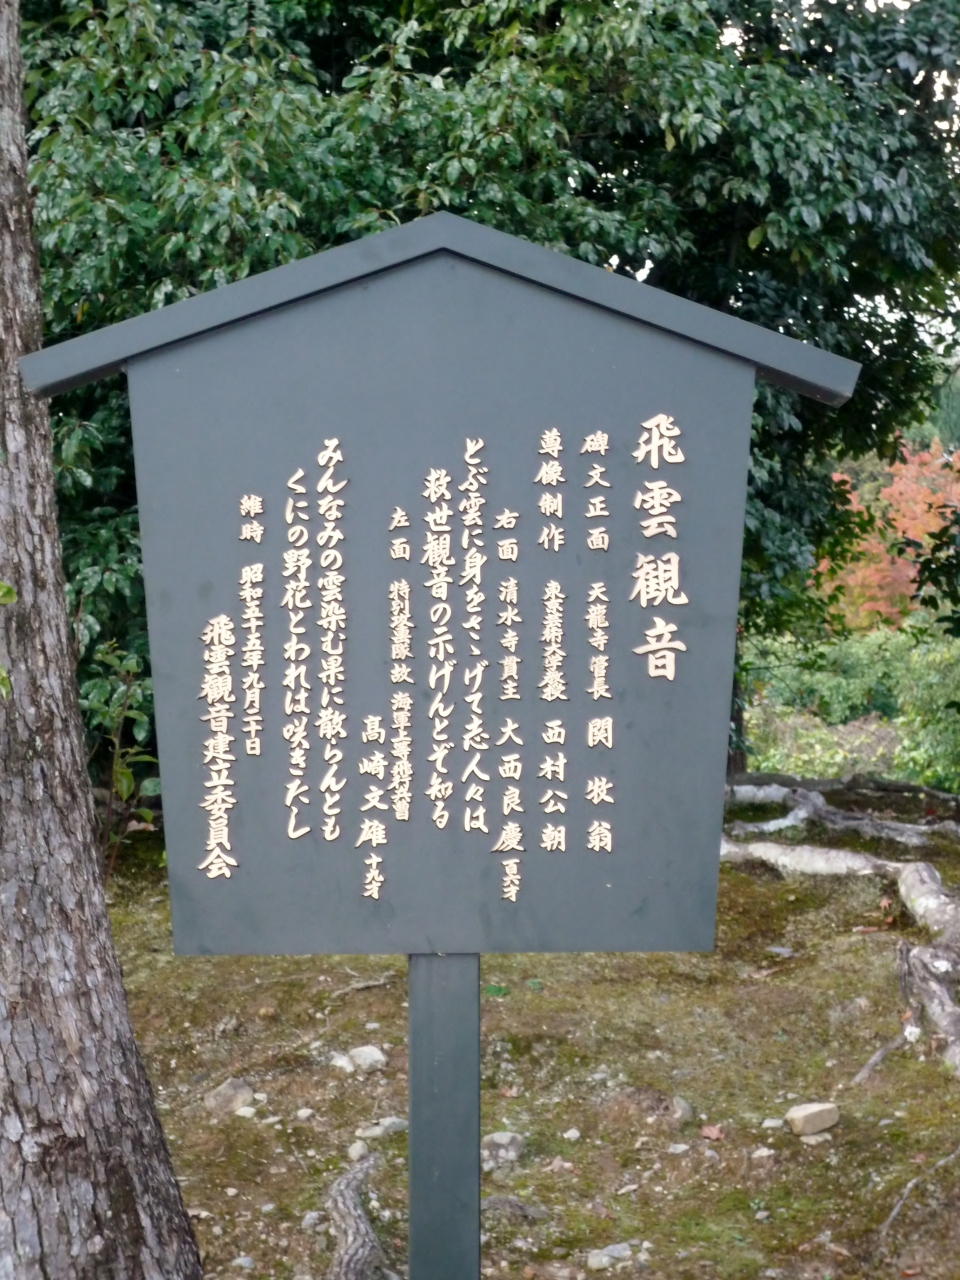 飛雲観音
碑文正面 天龍寺管長 関牧翁
尊像制作 東京芸術大学教授 西村公朝
右面 清水寺貫主 大西良慶 百六才
とぶ雲に身をさゝげて志人々は
救世観音の示げんとぞ知る
左面 特別攻撃隊 故 海軍上等飛行兵曹
髙崎文雄 十九才
みんなみの雲染む果に散らんとも
くにの野花とわれは咲きたし
維時 昭和五十五年九月二十日
飛雲観音建立委員会